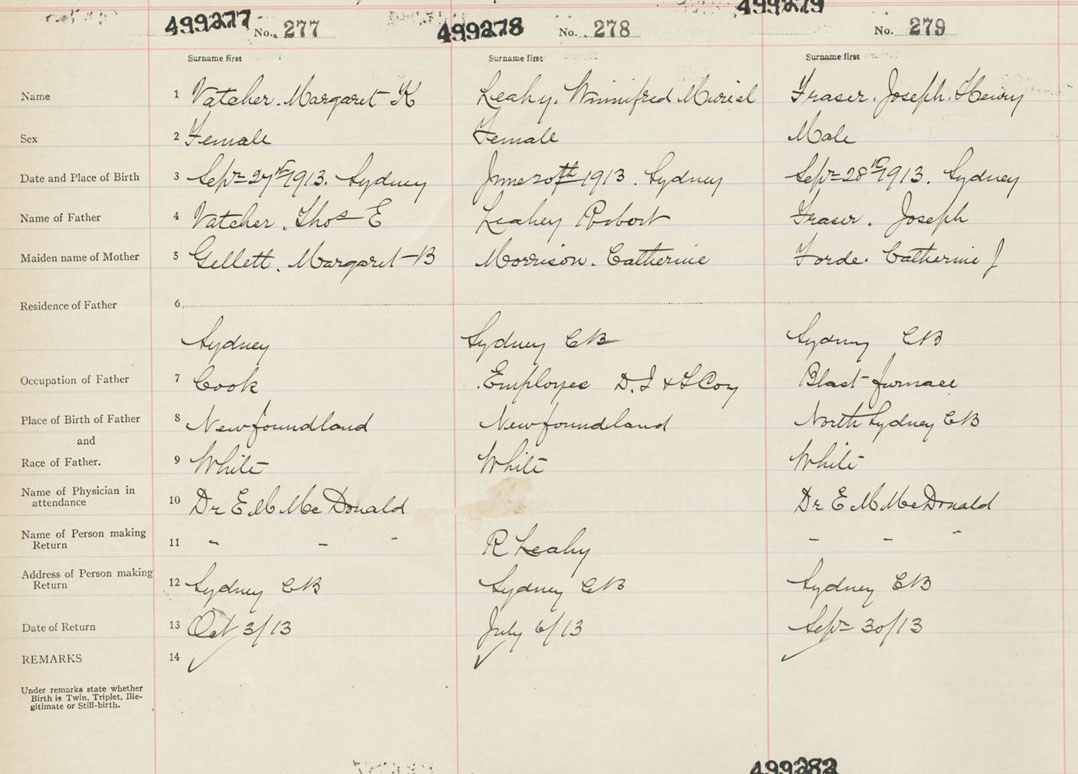 499277 No. 277 499278 No. 278 499279 No. 279
Surname first Surname first Surname first
Name 1 Vatcher. Margaret K Leahy. Winnifred Muriel Fraser. Joseph. Henry
Sex 2 Female Female Male
Date and Place of Birth 3 Sept 27th 1913. Sydney June 20th 1913. Sydney Sept 28th 1913. Sydney
Name of Father 4 Vatcher. Thos E Leahey Robert Fraser. Joseph
Maiden name of Mother 5 Gellett. Margaret B Morrison. Catherine Forde. Catherine J
Residence of Father 6
Sydney Sydney CB Sydney CB
Occupation of Father 7 Cook Employee D. I & S Coy Blast-furnace
Place of Birth of Father 8 Newfoundland Newfoundland North Sydney CB
and
Race of Father. 9 White White White
Name of Physician in
attendance 10 Dr E M McDonald Dr E M McDonald
Name of Person making
Return 11 " " " R Leahy " " "
Address of Person making
Return 12 Sydney CB Sydney CB Sydney CB
Date of Return 13 Oct 3/13 July 6/13 Sept 30/13
REMARKS 14
Under remarks state whether
Birth is Twin, Triplet, Ille-
gitimate or Still-birth.
499282